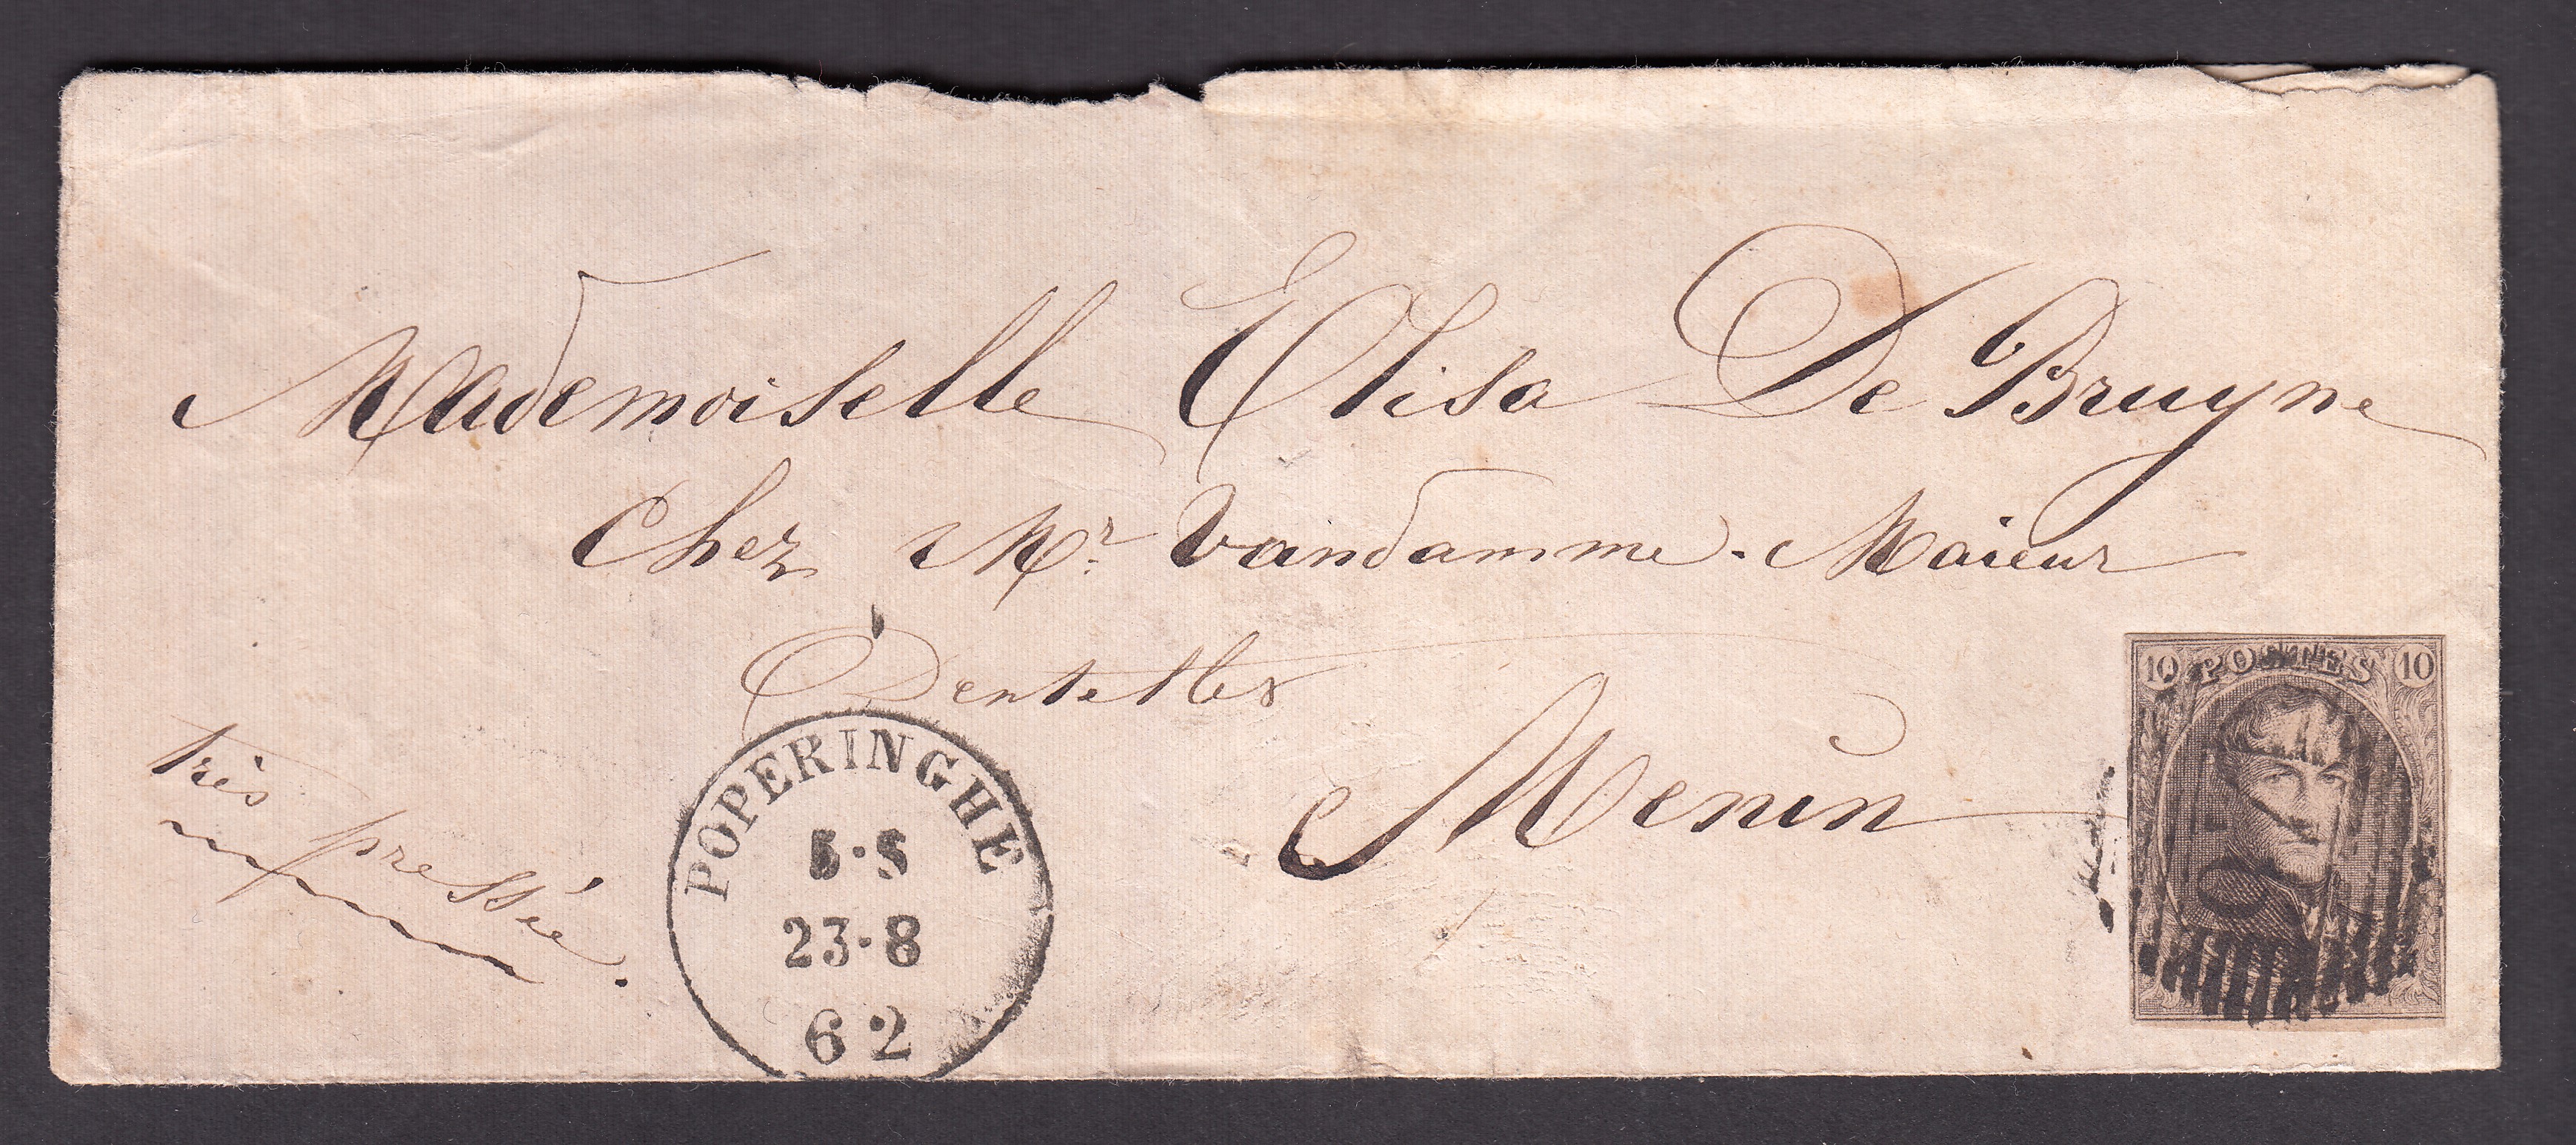 Mademoiselle Elisa De Bruyne
Chez Mr. Vandamme - Maieur
Dentelles
Menin
très pressée.
POPERINGHE
5·S
23·8
62
10 POSTES 10